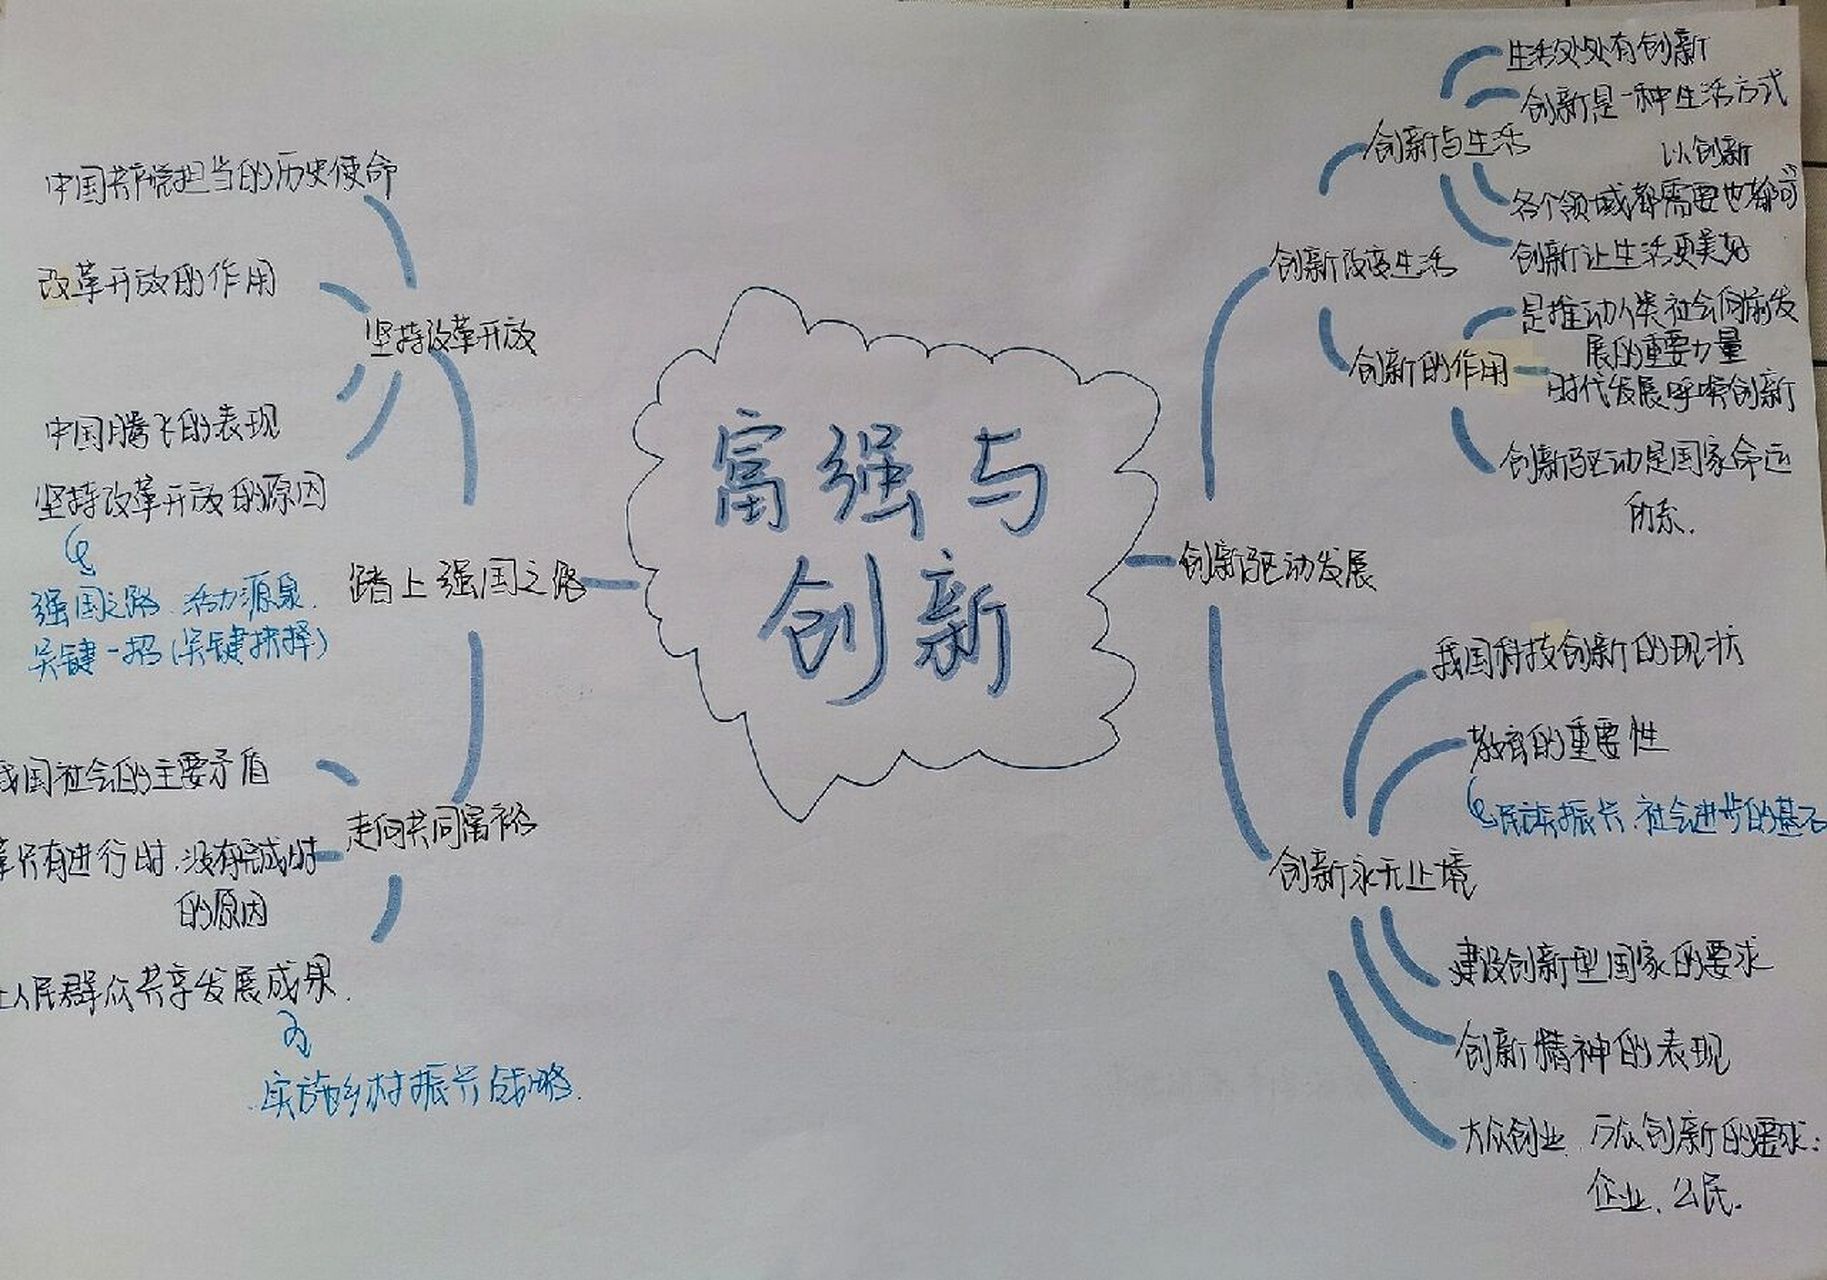 富强与
创新
踏上强国之路
坚持改革开放
中国共产党担当的历史使命
改革开放的作用
中国腾飞的表现
坚持改革开放的原因
强国之路、活力源泉、
关键一招(关键抉择)
走向共同富裕
我国社会的主要矛盾
革只有进行时,没有完成时
的原因
人民群众共享发展成果.
实施乡村振兴战略.
创新驱动发展
创新改变生活
创新与生活
生活处处有创新
创新是一种生活方式
以创新
各个领域都需要也都可
创新让生活更美好
创新的作用
是推动人类社会向前发
展的重要力量
时代发展呼唤创新
创新驱动是国家命运
所系.
创新永无止境
我国科技创新的现状
教育的重要性
民族振兴、社会进步的基石
建设创新型国家的要求
创新精神的表现
大众创业、万众创新的要求:
企业、公民.